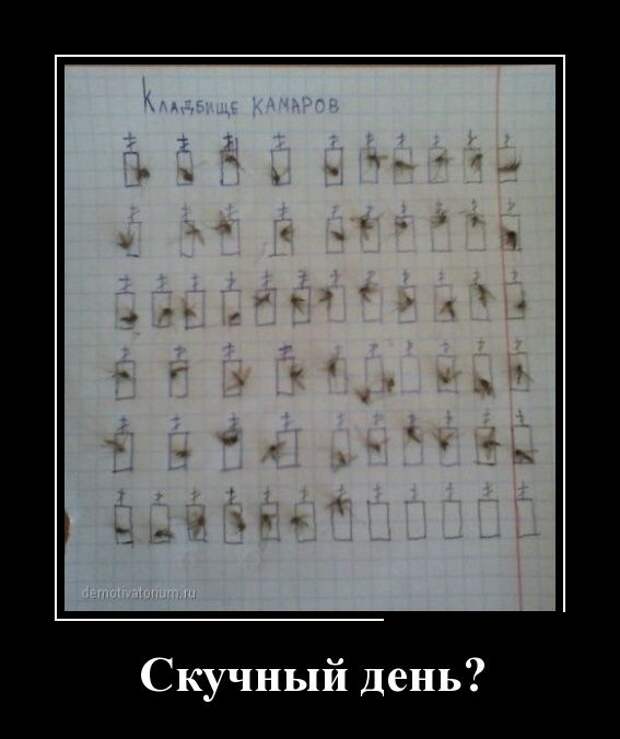 Кладбище камаров
demotivatorium.ru
Скучный день?